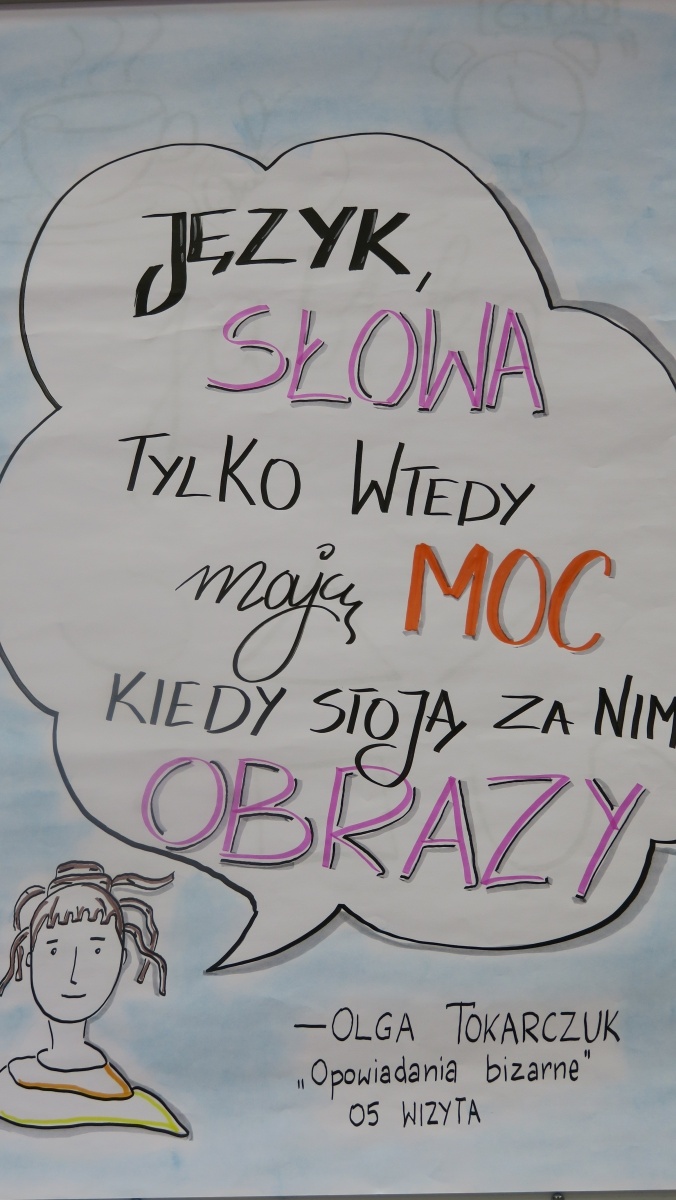 JĘZYK,
SŁOWA
TYLKO WTEDY
mają MOC
KIEDY STOJĄ ZA NIM
OBRAZY
—OLGA TOKARCZUK
„Opowiadania bizarne"
05 WIZYTA